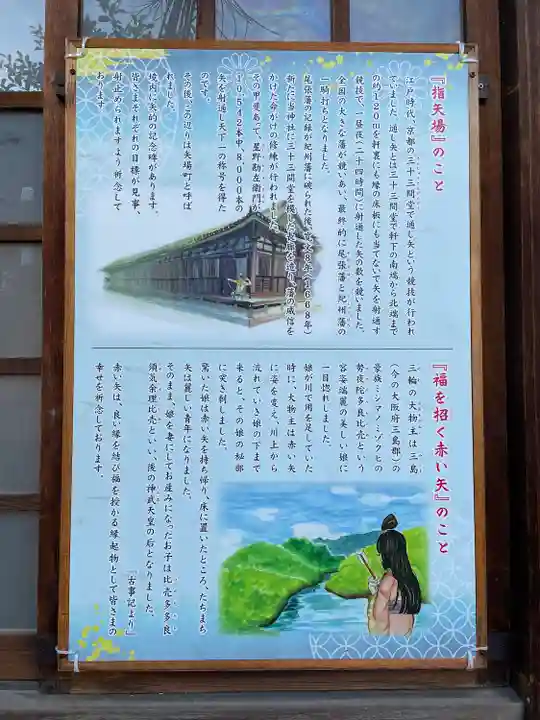 『指矢場』のこと
江戸時代、京都の三十三間堂で通し矢という競技が行われ
ていました。通し矢とは三十三間堂で軒下の南端から北端まで
の約120mを軒裏にも縁の床板にも当てないで矢を射通す
競技で、一昼夜(二十四時間)に射通した矢の数を競いました。
全国の大きな藩が競いあい、最終的に尾張藩と紀州藩の
一騎打ちとなりました。
尾張藩の記録が紀州藩に破られた後、寛文8年(1668年)
新たに当神社に三十三間堂を模した矢場を造り、藩の威信を
かけた命がけの修練が行われました。
その甲斐あって、星野勘左衛門が
10,542本中、8,000本の
矢を射通し天下一の称号を得た
のです。
その後、この辺りは矢場町と呼ば
れました。
境内に矢的の記念碑があります。
皆さまそれぞれの目標が見事、
射止められますよう祈念して
おります。
『福を招く赤い矢』のこと
三輪の大物主は三島
(今の大阪府三島郡)の
豪族ミシマノミゾクヒの
勢夜陀多良比売という
容姿端麗の美しい娘に
一目惚れしました。
娘が川で用を足していた
時に、大物主は赤い矢
に姿を変え、川上から
流れていき娘の下まで
来ると、その娘の秘部
に突き刺しました。
驚いた娘は赤い矢を持ち帰り、床に置いたところ、たちまち
矢は麗しい青年になりました。
そのまま、娘を妻にしてお産みになったお子は比売多多良
須気余理比売といい、後の神武天皇の后となりました。
『古事記より』
赤い矢は、良い縁を結び福を授かる縁起物として皆さまの
幸せを祈念しております。